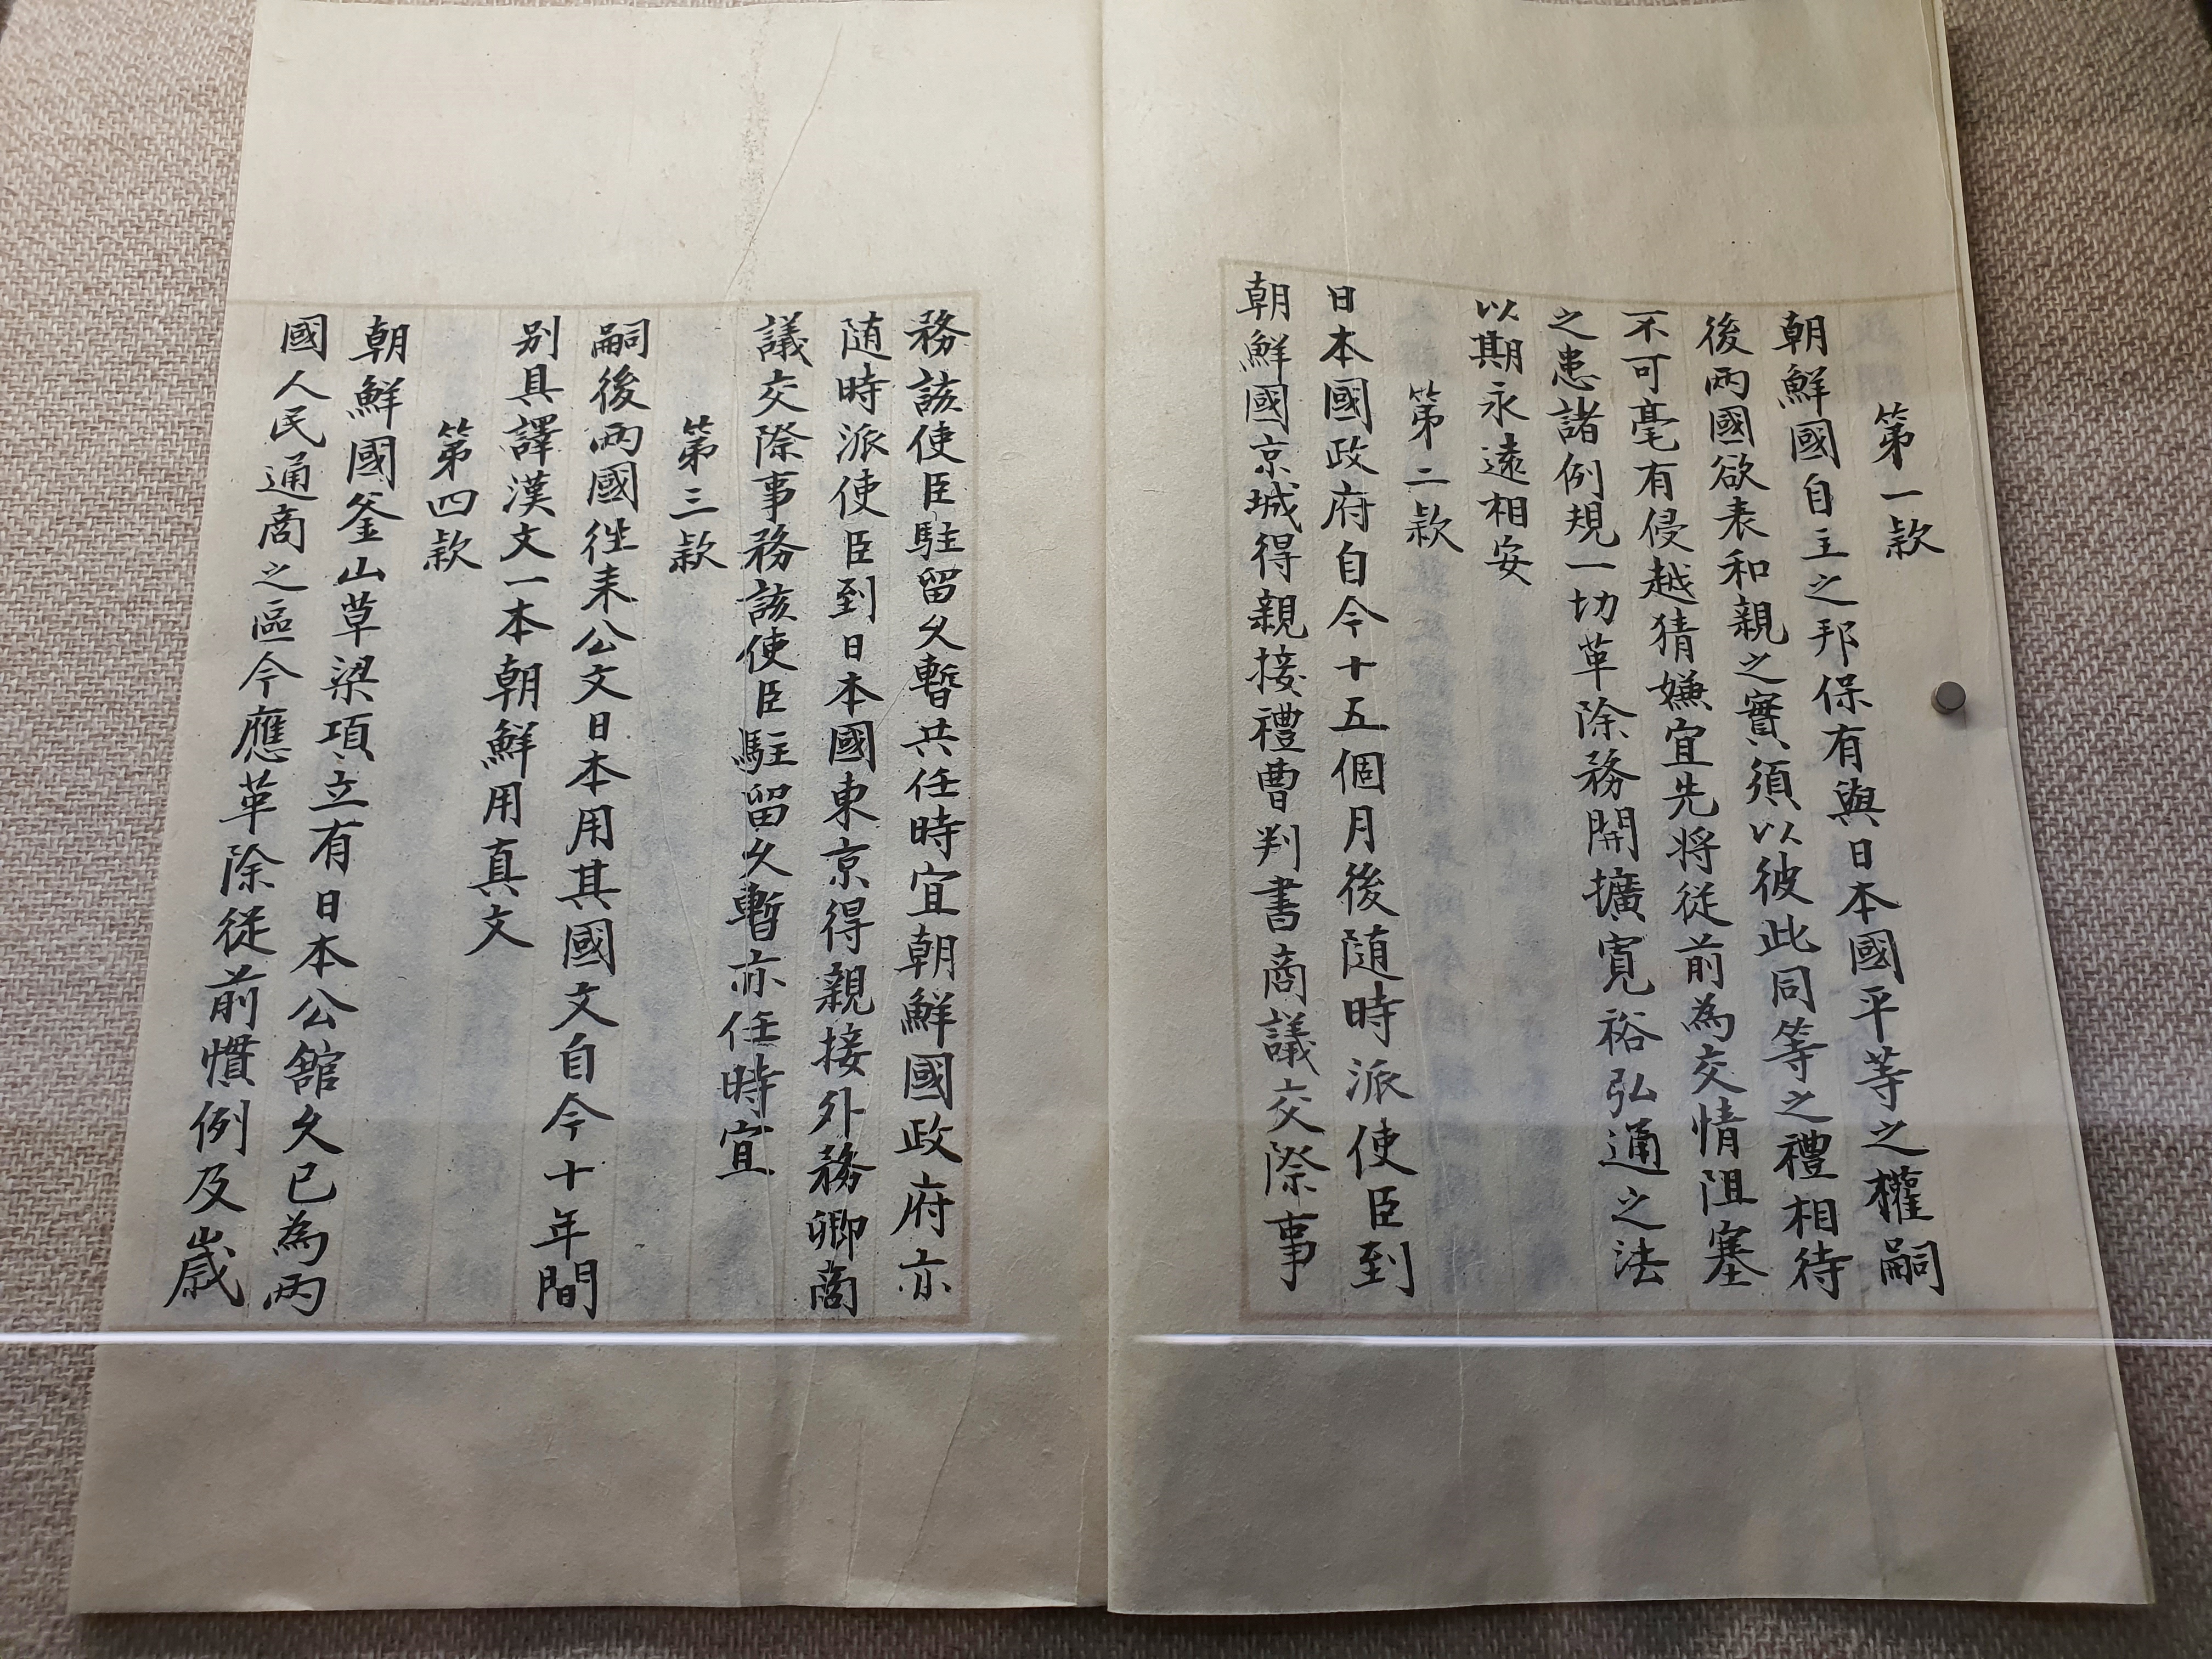 第一款
朝鮮國自主之邦保有與日本國平等之權嗣
後兩國欲表和親之實須以彼此同等之禮相待
不可毫有侵越猜嫌宜先將從前為交情阻塞
之患諸例規一切革除務開擴寬裕弘通之法
以期永遠相安
第二款
日本國政府自今十五個月後随時派使臣到
朝鮮國京城得親接禮曹判書商議交際事
務該使臣駐留久暫共任時宜朝鮮國政府亦
随時派使臣到日本國東京得親接外務卿商
議交際事務該使臣駐留久暫亦任時宜
第三款
嗣後兩國徃来公文日本用其國文自今十年間
別具譯漢文一本朝鮮用真文
第四款
朝鮮國釜山草梁項立有日本公館久已為兩
國人民通商之區今應革除從前慣例及歲